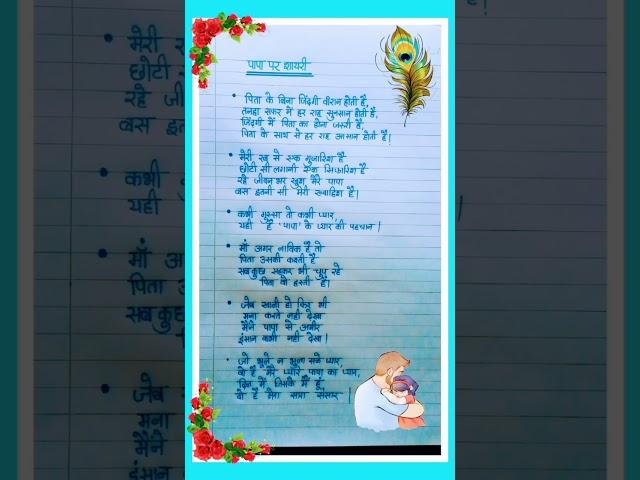 पापा पर शायरी
• पिता के बिना जिंदगी वीरान होती है,
तनहा सफर में हर राह सुनसान होती है,
जिंदगी में पिता का होना जरूरी है,
पिता के साथ से हर राह आसान होती है!
• मेरी रब से एक गुजारिश है
छोटी सी लगानी एक सिफारिश है
रहे जीवन भर खुश मेरे पापा
बस इतनी सी मेरी ख्वाहिश है!
• कभी गुस्सा तो कभी प्यार,
यही है 'पापा' के प्यार की पहचान!
• माँ अगर नाविक है तो
पिता उसकी कश्ती है
सबकुछ सहकर भी चुप रहे
पिता वो हस्ती है!
• जेब खाली हो फिर भी
मना करते नही देखा
मैंने पापा से अमीर
इंसान कभी नही देखा!
• जो भूले न भुला सके प्यार,
वो है मेरे प्यारे पापा का प्यार,
दिल में जिसके मैं हूं,
वो है मेरा सारा संसार!